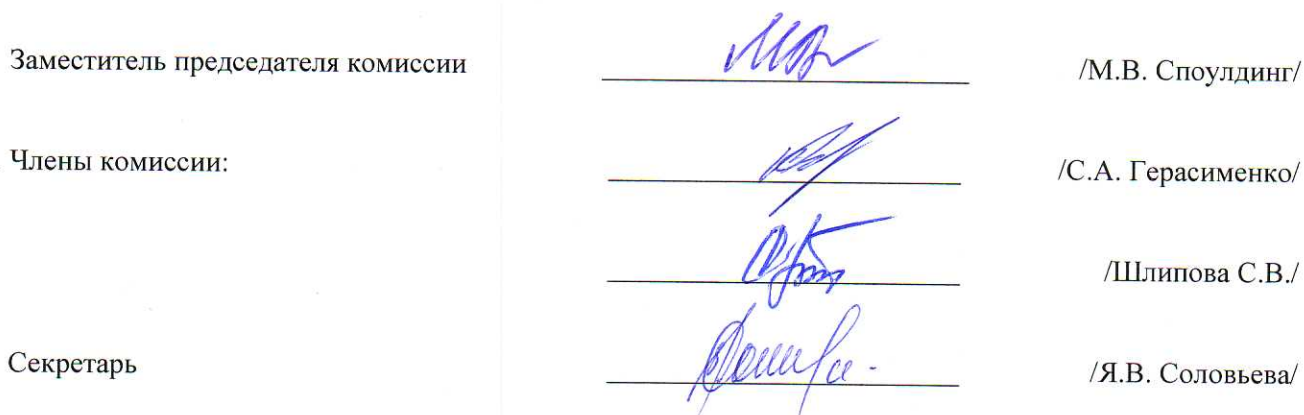 Заместитель председателя комиссии /М.В. Споулдинг/
Члены комиссии: /С.А. Герасименко/
/Шлипова С.В./
Секретарь /Я.В. Соловьева/